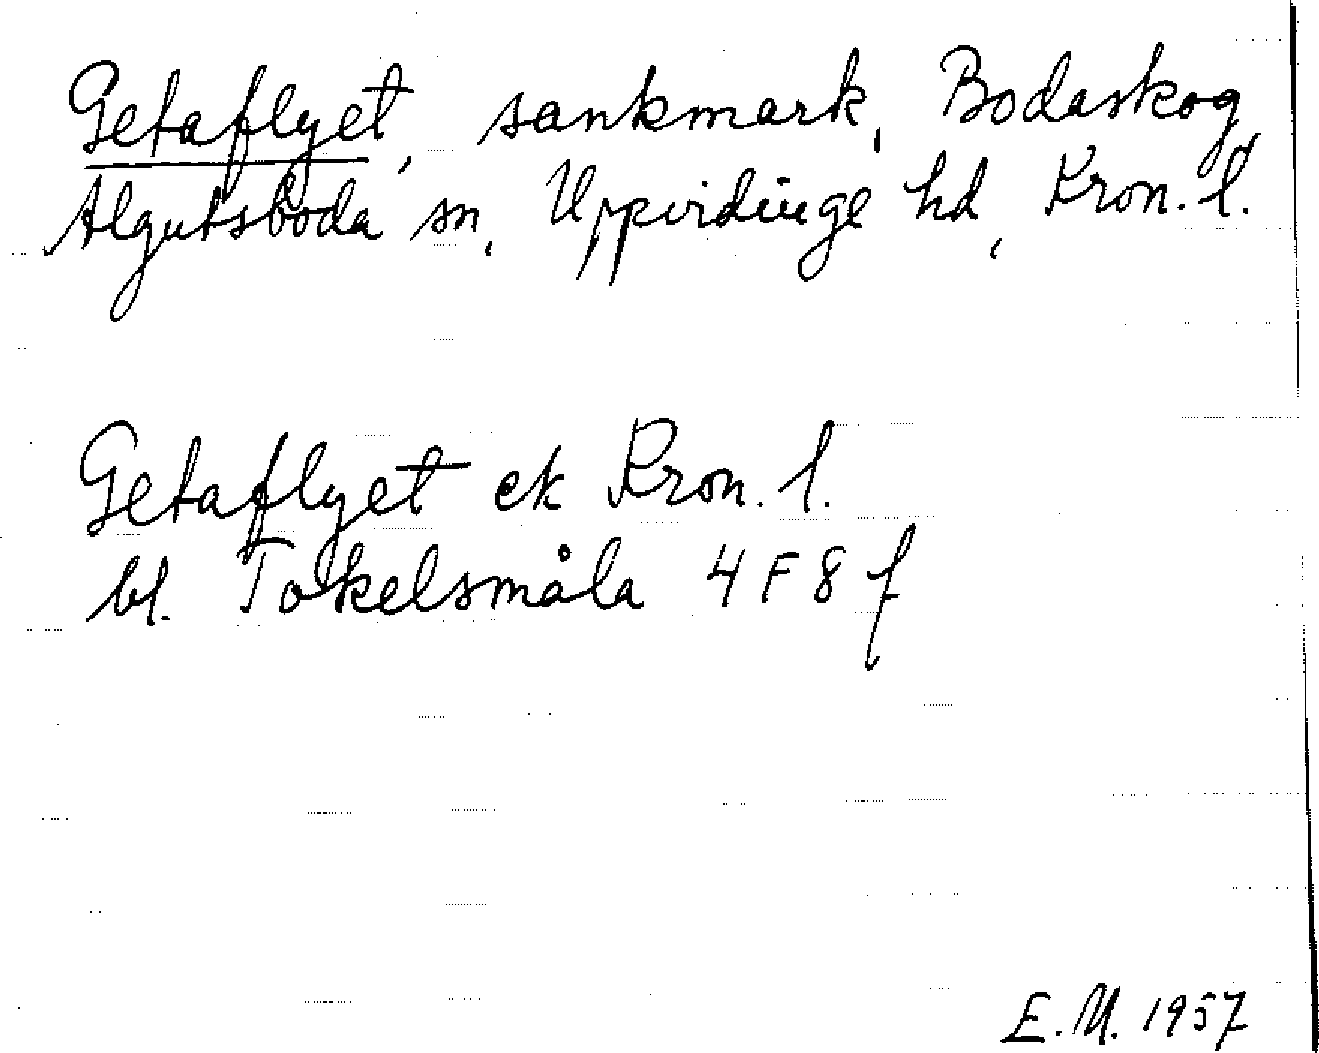 Getaflyet, sankmark, Bodaskog,
Algutsboda sn, Uppvidinge hd, Kron. l.
Getaflyet ek Kron. l.
bl. Tokelsmåla 4F8f
E.M. 1957